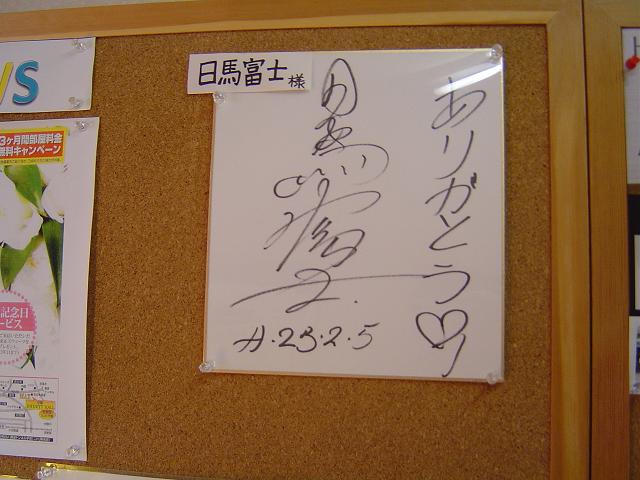 VS
3ヶ月間部屋料金
無料キャンペーン
記念日
ービス
日馬富士様
日馬富士
ありがとう♡
H.23.2.5